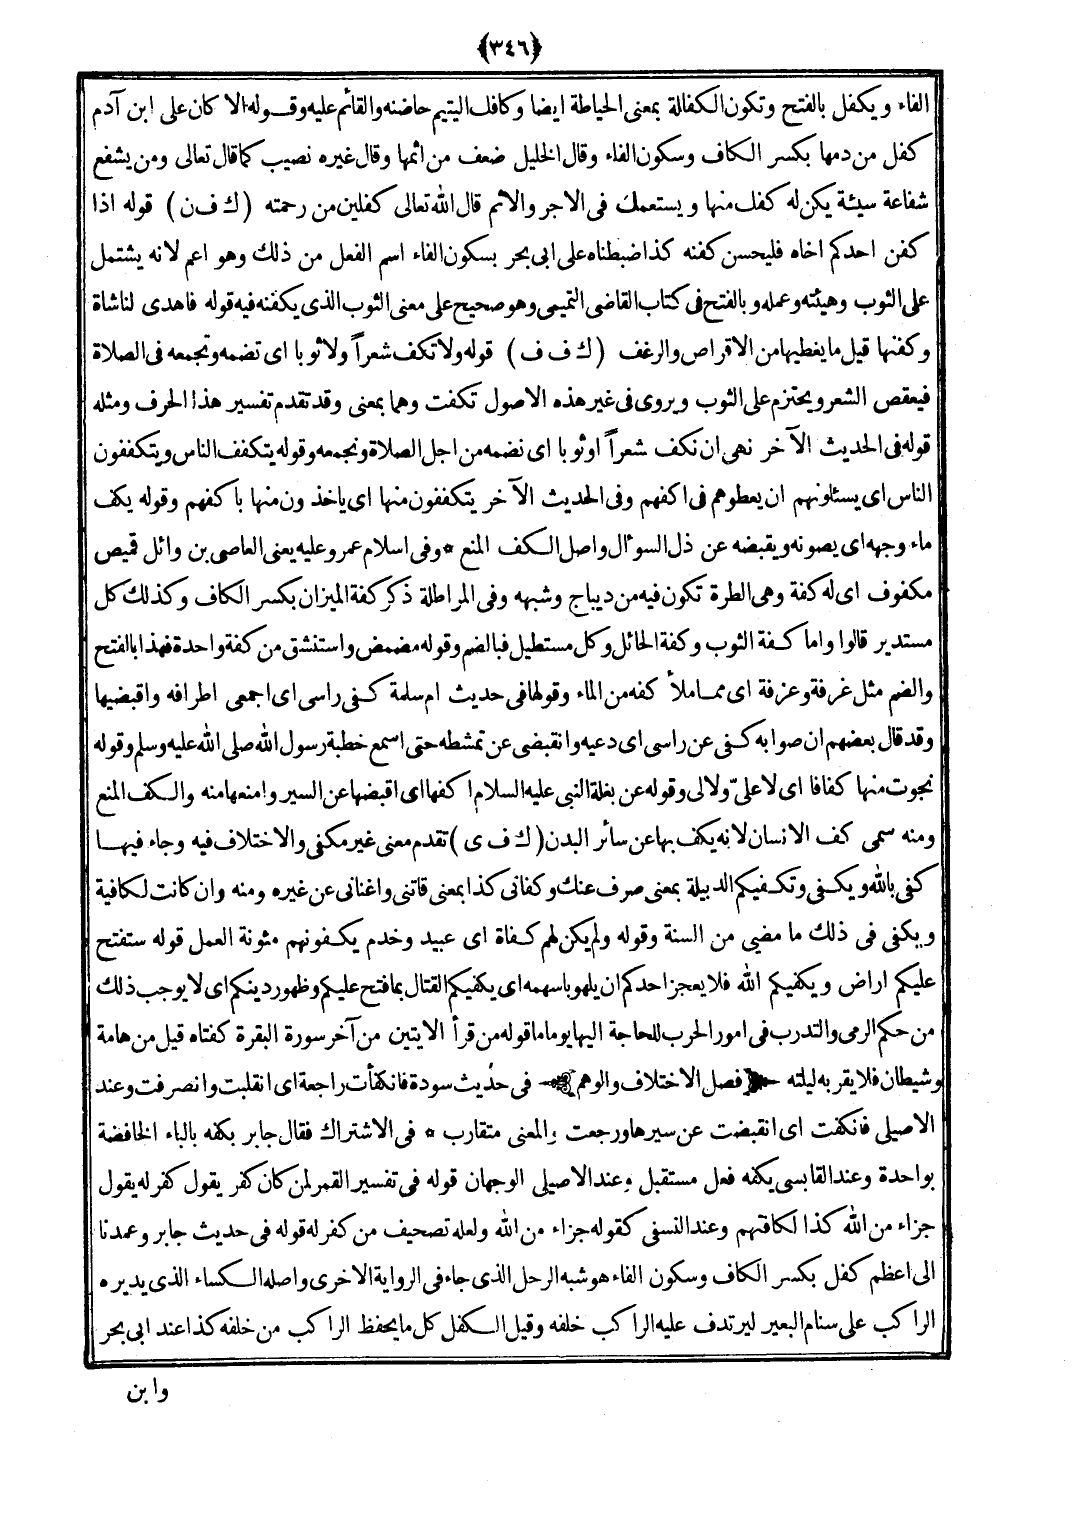 ﴿٣٤٦﴾
الفاء ويكفل بالفتح وتكون الكفالة بمعنى الحياطة ايضا وكافل اليتيم حاضنه والقائم عليه وقوله الا كان على ابن آدم
كفل من دمها بكسر الكاف وسكون الفاء وقال الخليل ضعف من اثمها وقال غيره نصيب كما قال تعالى ومن يشفع
شفاعة سيئة يكن له كفل منها ويستعمل فى الاجر والاثم قال الله تعالى كفلين من رحمته (ك ف ن) قوله اذا
كفن احدكم اخاه فليحسن كفنه كذا ضبطناه على ابى بحر بسكون الفاء اسم الفعل من ذلك وهو اعم لانه يشتمل
على الثوب وهيئته وعمله وبالفتح فى كتاب القاضى التميمى وهو صحيح على معنى الثوب الذى يكفنه فيه قوله فاهدى لنا شاة
وكفنها قيل ما يغطيها من الاقراص والرغف (ك ف ف) قوله ولا تكف شعراً ولا ثوبا اى تضمه وتجمعه فى الصلاة
فيعقص الشعر ويحتزم على الثوب ويروى فى غير هذه الاصول تكفت وهما بمعنى وقد تقدم تفسير هذا الحرف ومثله
قوله فى الحديث الآخر نهى ان نكف شعراً او ثوبا اى نضمه من اجل الصلاة ونجمعه وقوله يتكفف الناس ويتكففون
الناس اى يسئلونهم ان يعطوهم فى اكفهم وفى الحديث الآخر يتكففون منها اى ياخذون منها باكفهم وقوله يكف
ماء وجهه اى يصونه ويقبضه عن ذل السوأل واصل الكف المنع * وفى اسلام عمر وعليه يعنى العاصى بن وائل قميص
مكفوف اى له كفة وهى الطرة تكون فيه من ديباج وشبهه وفى المراطلة ذكر كفة الميزان بكسر الكاف وكذلك كل
مستدير قالوا واما كفة الثوب وكفة الحائل وكل مستطيل فبالضم وقوله مضمض واستنشق من كفة واحدة فهذا بالفتح
والضم مثل غرفة وغرفة اى مما ملأ كفه من الماء وقولها فى حديث ام سلمة كفى راسى اى اجمعى اطرافه واقبضيها
وقد قال بعضهم ان صوابه كفى عن راسى اى دعيه وانقبضى عن تمشطه حتى اسمع خطبة رسول الله صلى الله عليه وسلم وقوله
نجوت منها كفافا اى لا علىّ ولا لى وقوله عن بغلة النبى عليه السلام اكفها اى اقبضها عن السير وامنعها منه والكف المنع
ومنه سمى كف الانسان لانه يكف بها عن سائر البدن (ك ف ى) تقدم معنى غير مكفى والاختلاف فيه وجاء فيها
كفى بالله ويكفى وتكفيكم الدبيلة بمعنى صرف عنك وكفانى كذا بمعنى قاتنى واغنانى عن غيره ومنه وان كانت لكافية
ويكفى فى ذلك ما مضى من السنة وقوله ولم يكن لهم كفاة اى عبيد وخدم يكفونهم مئونة العمل قوله ستفتح
عليكم اراض ويكفيكم الله فلا يعجز احدكم ان يلهو باسهمه اى يكفيكم القتال بما فتح عليكم وظهور دينكم اى لا يوجب ذلك
من حكم الرمى والتدرب فى امور الحرب للحاجة اليها يوما ما قوله من قرأ الايتين من آخر سورة البقرة كفتاه قيل من هامة
وشيطان فلا يقربه ليلته ﴿فصل الاختلاف والوهم﴾ فى حديث سودة فانكفأت راجعة اى انقلبت وانصرفت وعند
الاصيلى فانكفت اى انقبضت عن سيرها ورجعت والمعنى متقارب * فى الاشتراك فقال جابر بكفه بالباء الخافضة
بواحدة وعند القابسى يكفه فعل مستقبل وعند الاصيلى الوجهان قوله فى تفسير القمر لمن كان كفر يقول كفر له يقول
جزاء من الله كذا لكافتهم وعند النسفى كقوله جزاء من الله ولعله تصحيف من كفر له قوله فى حديث جابر وعمدنا
الى اعظم كفل بكسر الكاف وسكون الفاء هو شبه الرحل الذى جاء فى الرواية الاخرى واصله الكساء الذى يديره
الراكب على سنام البعير ليرتدف عليه الراكب خلفه وقيل الكفل كل ما يحفظ الراكب من خلفه كذا عند ابى بحر
وابن